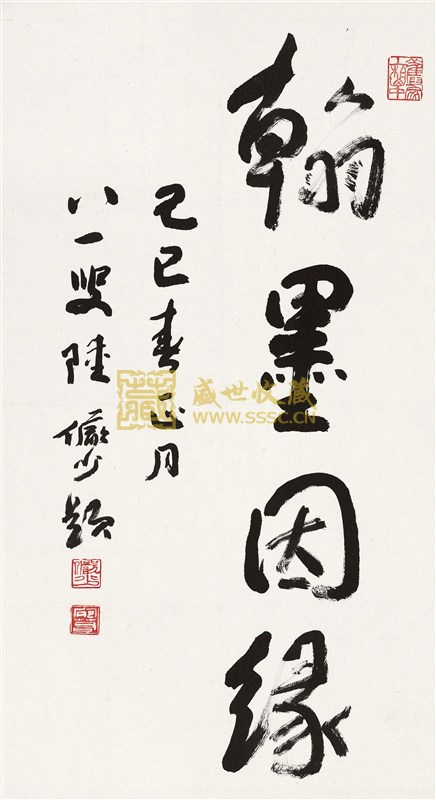 翰墨因缘
己巳春正月
八一叟陆俨少题
盛世收藏
www.sssc.cn
藏